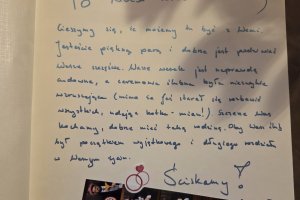 Cieszymy się, że możemy tu być z Wami.
Jesteście piękną parą i dobrze jest podziwiać
Wasze szczęście. Wasze wesele jest naprawdę
cudowne, a ceremonia ślubna była niezwykle
wzruszająca (mimo że
wszystkich, udając kotka - miau!). Szczerze Was
kochamy, dobrze mieć taką rodzinę. Oby Wasz ślub
był początkiem wyjątkowego i długiego rozdziału
w Waszym życiu.
Ściskamy!